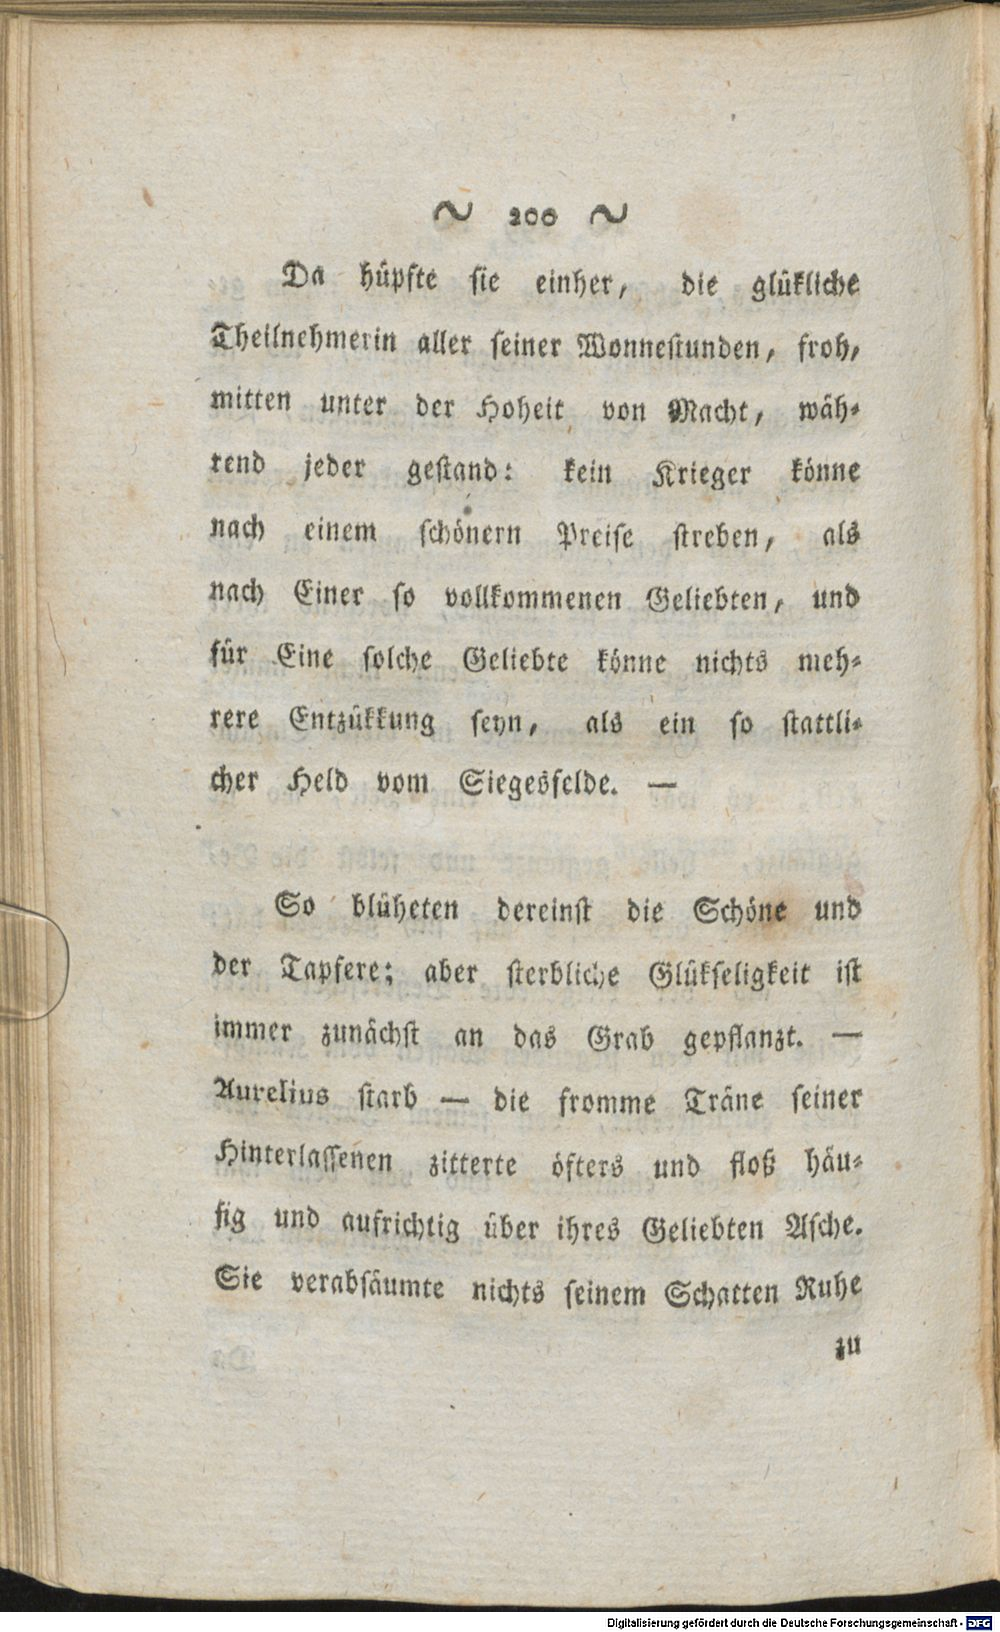 ~ 200 ~
Da hüpfte ſie einher, die glükliche
Theilnehmerin aller ſeiner Wonneſtunden, froh,
mitten unter der Hoheit von Macht, wäh⸗
rend jeder geſtand: kein Krieger könne
nach einem ſchönern Preiſe ſtreben, als
nach Einer ſo vollkommenen Geliebten, und
für Eine ſolche Geliebte könne nichts meh⸗
rere Entzükkung ſeyn, als ein ſo ſtattli⸗
cher Held vom Siegesfelde. —
So blüheten dereinſt die Schöne und
der Tapfere; aber ſterbliche Glükſeligkeit iſt
immer zunächſt an das Grab gepflanzt. —
Aurelius ſtarb — die fromme Träne ſeiner
Hinterlaſſenen zitterte öfters und floß häu⸗
fig und aufrichtig über ihres Geliebten Aſche.
Sie verabſäumte nichts ſeinem Schatten Ruhe
zu
Digitalisierung gefördert durch die Deutsche Forschungsgemeinschaft - DFG